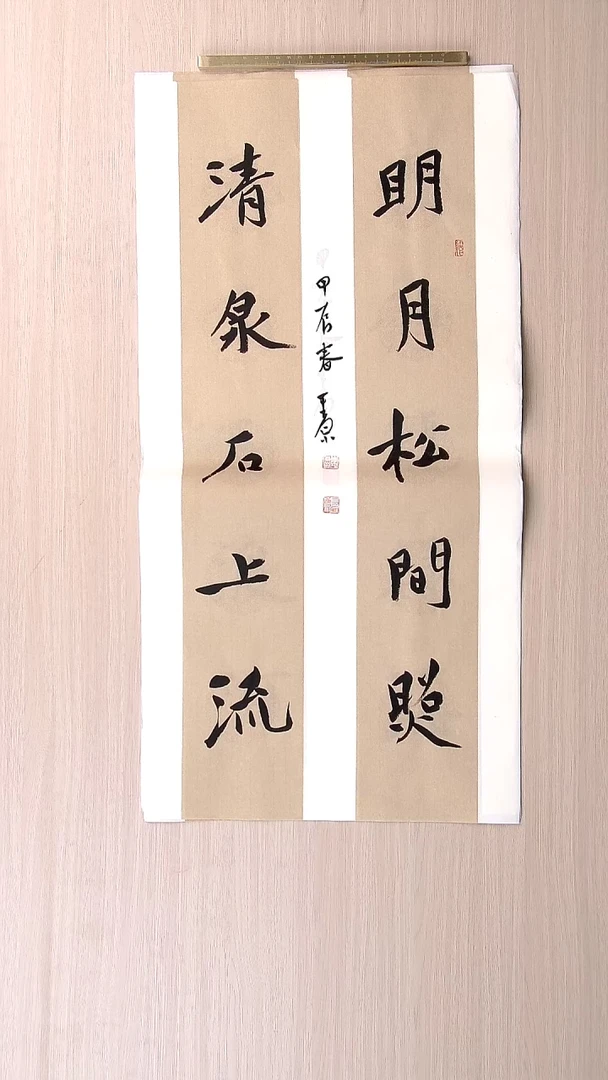 明月松間照
清泉石上流
甲辰春